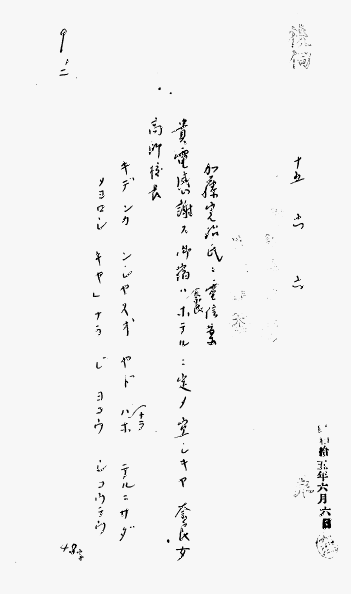 拾五年六月六日
十五 六 六
加藤完治氏ニ電信案
貴電感謝ス御宿ハ奈良ホテルニ定メ宜シキヤ 奈良女
高師校長
キデンカ ンシヤスオ ヤドハナラホ テルニサダ
メヨロシ キヤ」ナラ ジヨコウ
48字